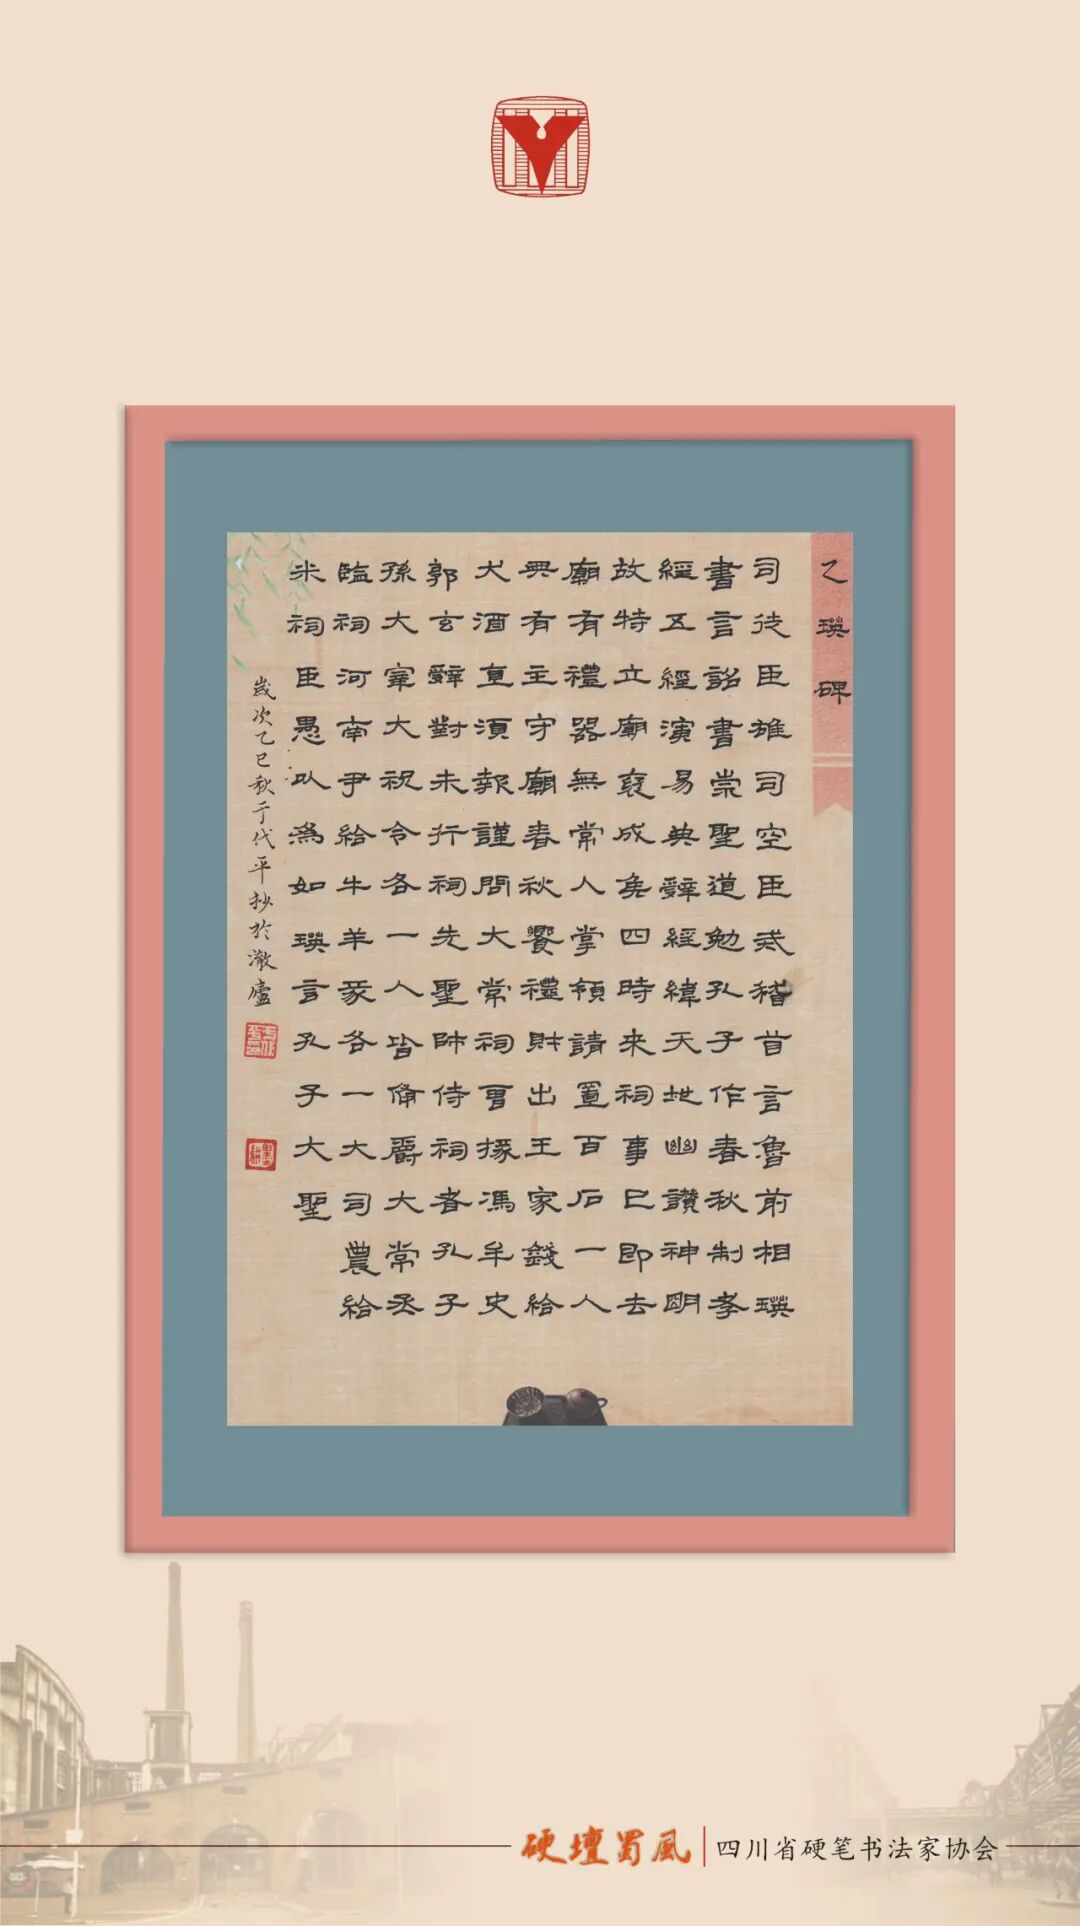 乙瑛碑
司徒臣雄司空臣戒稽首言魯前相瑛
書言詔書崇聖道勉孔子作春秋制孝
經五經演易典辭經緯天地幽讃神明
故特立廟褒成侯四時来祠事已即去
廟有禮器無常人掌領請置百石一人
典有主守廟春秋饗禮財出王家錢給
犬酒直須報謹問大常祠曹掾馮牟史
郭玄辭對未行祠先聖師侍祠者孔子
孫大宰大祝令各一人皆備爵大常丞
臨祠河南尹給牛羊豕各一大司農給
米祠臣愚以為如瑛言孔子大聖
歲次乙巳秋于代平抄於澂廬
硬壇蜀風
四川省硬笔书法家协会